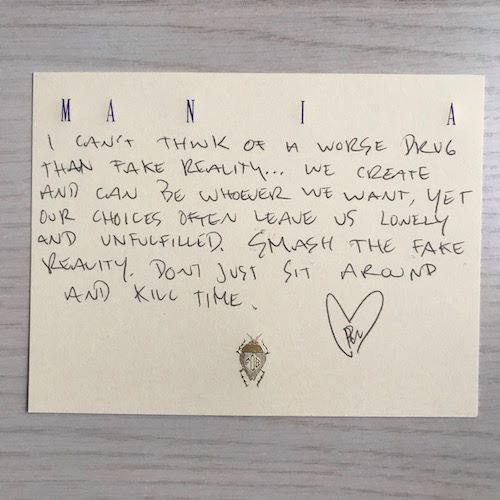 M A N I A
I CAN'T THINK OF A WORSE DRUG
THAN FAKE REALITY... WE CREATE
AND CAN BE WHOEVER WE WANT, YET
OUR CHOICES OFTEN LEAVE US LONELY
AND UNFULFILLED. SMASH THE FAKE
REALITY. DONT JUST SIT AROUND
AND KILL TIME.